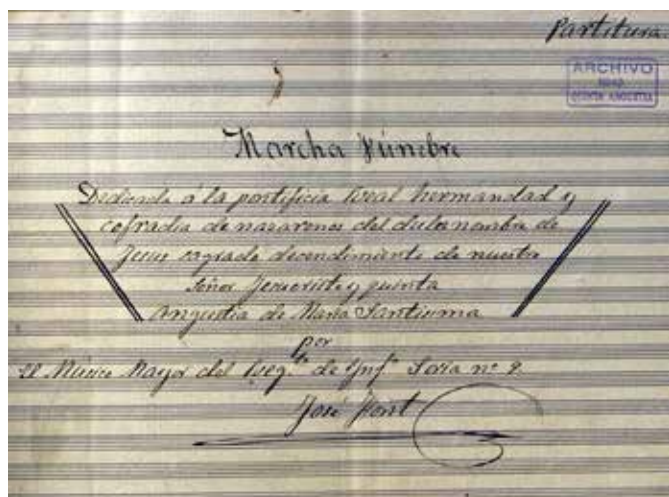 Partitura.
ARCHIVO
HDAD
QUINTA ANGUSTIA
Marcha Fúnebre
Dedicada á la pontificia Real hermandad y
cofradia de nazarenos del dulce nombre de
Jesus sagrado decendimiento de nuestro
Señor Jesucristo y quinta
angustia de Maria Santisima
por
El Músico Mayor del Regto de Infa Soria nº 9.
José Font